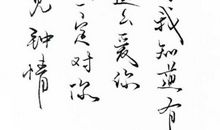 我知道有
么爱你
一定对你
见钟情